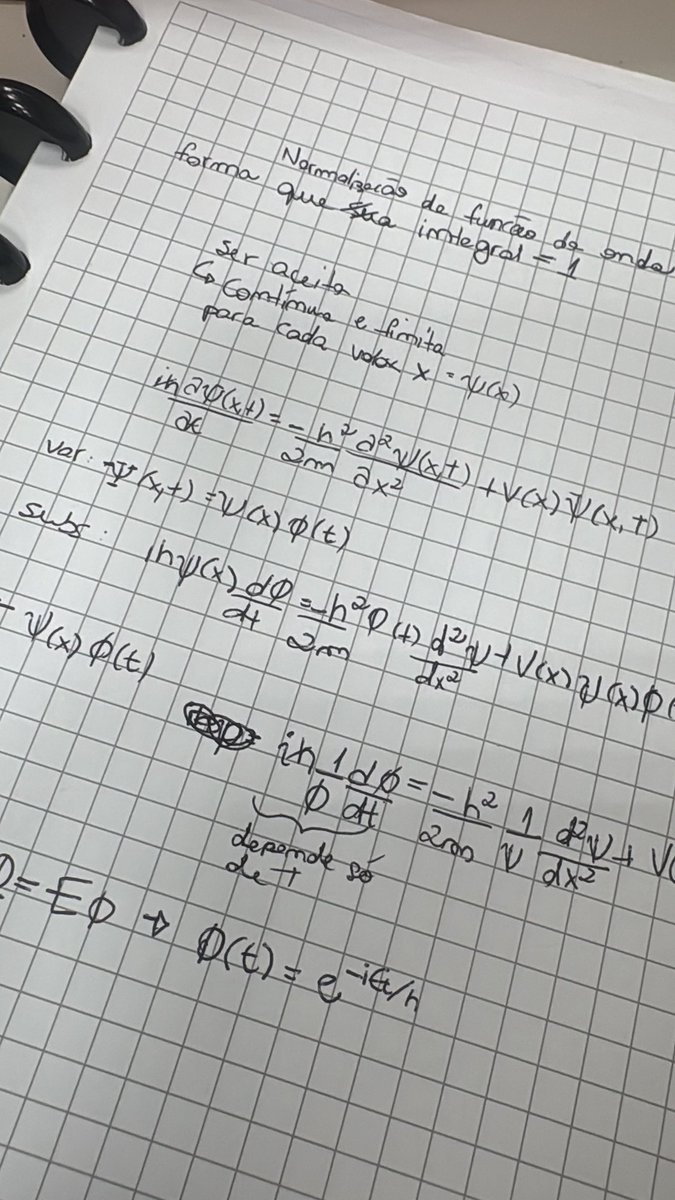 Normalização de função de onda
forma que sua integral = 1
ser aceita
↳ contínua e finita
para cada valor x = ψ(x)
ih ∂ψ(x,t)/∂t = -h²/2m ∂²ψ(x,t)/∂x² + V(x) Ψ(x,t)
var: Ψ(x,t) = ψ(x) ϕ(t)
subs: ihψ(x) dϕ/dt = -h²/2m ϕ(t) d²ψ/dx² + V(x) ψ(x) ϕ(
÷ ψ(x) ϕ(t)
ih 1/ϕ dϕ/dt = -h²/2m 1/ψ d²ψ/dx² + V(
depende só
de t
= Eϕ → ϕ(t) = e^-iEt/h